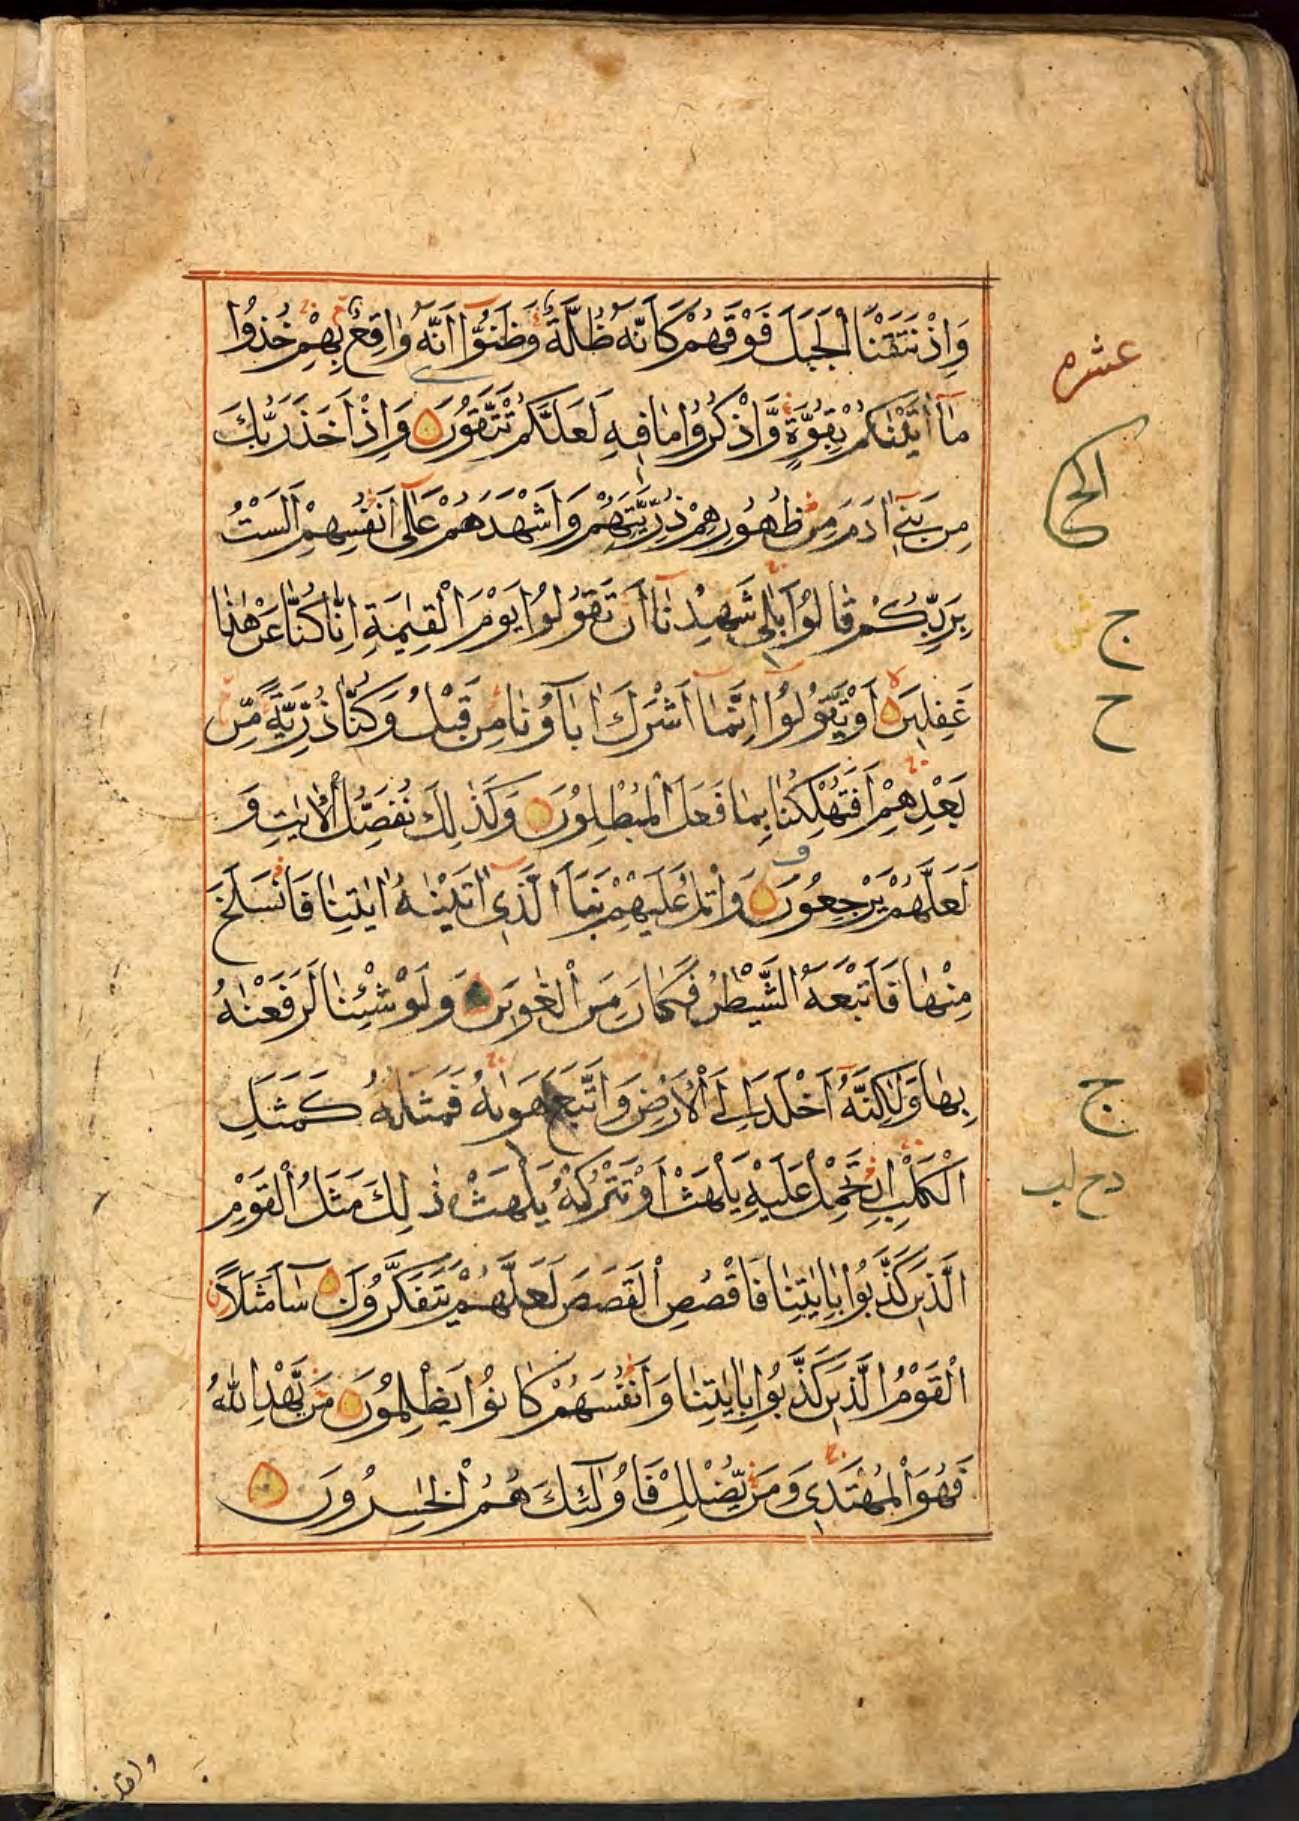 وَاِذْ نَتَقْنَا الْجَبَلَ فَوْقَهُمْ كَاَنَّهٗ ظُلَّةٌ وَّظَنُّوْٓا اَنَّهٗ وَاقِعٌۢ بِهِمْ خُذُوْا
مَآ اٰتَيْنٰكُمْ بِقُوَّةٍ وَّاذْكُرُوْا مَا فِيْهِ لَعَلَّكُمْ تَتَّقُوْنَ وَاِذْ اَخَذَ رَبُّكَ
مِنْ بَنِيْٓ اٰدَمَ مِنْ ظُهُوْرِهِمْ ذُرِّيَّتَهُمْ وَاَشْهَدَهُمْ عَلٰٓى اَنْفُسِهِمْ اَلَسْتُ
بِرَبِّكُمْ قَالُوْا بَلٰى شَهِدْنَآ اَنْ تَقُوْلُوْا يَوْمَ الْقِيٰمَةِ اِنَّا كُنَّا عَنْ هٰذَا
غٰفِلِيْنَ اَوْ تَقُوْلُوْٓا اِنَّمَآ اَشْرَكَ اٰبَآؤُنَا مِنْ قَبْلُ وَكُنَّا ذُرِّيَّةً مِّنْ
بَعْدِهِمْ اَفَتُهْلِكُنَا بِمَا فَعَلَ الْمُبْطِلُوْنَ وَكَذٰلِكَ نُفَصِّلُ الْاٰيٰتِ وَ
لَعَلَّهُمْ يَرْجِعُوْنَ وَاتْلُ عَلَيْهِمْ نَبَاَ الَّذِيْٓ اٰتَيْنٰهُ اٰيٰتِنَا فَانْسَلَخَ
مِنْهَا فَاَتْبَعَهُ الشَّيْطٰنُ فَكَانَ مِنَ الْغٰوِيْنَ وَلَوْ شِئْنَا لَرَفَعْنٰهُ
بِهَا وَلٰكِنَّهٗٓ اَخْلَدَ اِلَى الْاَرْضِ وَاتَّبَعَ هَوٰىهُ فَمَثَلُهٗ كَمَثَلِ
الْكَلْبِ اِنْ تَحْمِلْ عَلَيْهِ يَلْهَثْ اَوْ تَتْرُكْهُ يَلْهَثْ ذٰلِكَ مَثَلُ الْقَوْمِ
الَّذِيْنَ كَذَّبُوْا بِاٰيٰتِنَا فَاقْصُصِ الْقَصَصَ لَعَلَّهُمْ يَتَفَكَّرُوْنَ سَآءَ مَثَلًا
الْقَوْمُ الَّذِيْنَ كَذَّبُوْا بِاٰيٰتِنَا وَاَنْفُسَهُمْ كَانُوْا يَظْلِمُوْنَ مَنْ يَّهْدِ اللّٰهُ
فَهُوَ الْمُهْتَدِيْ وَمَنْ يُّضْلِلْ فَاُولٰٓئِكَ هُمُ الْخٰسِرُوْنَ
عشره
ج
ح
ج